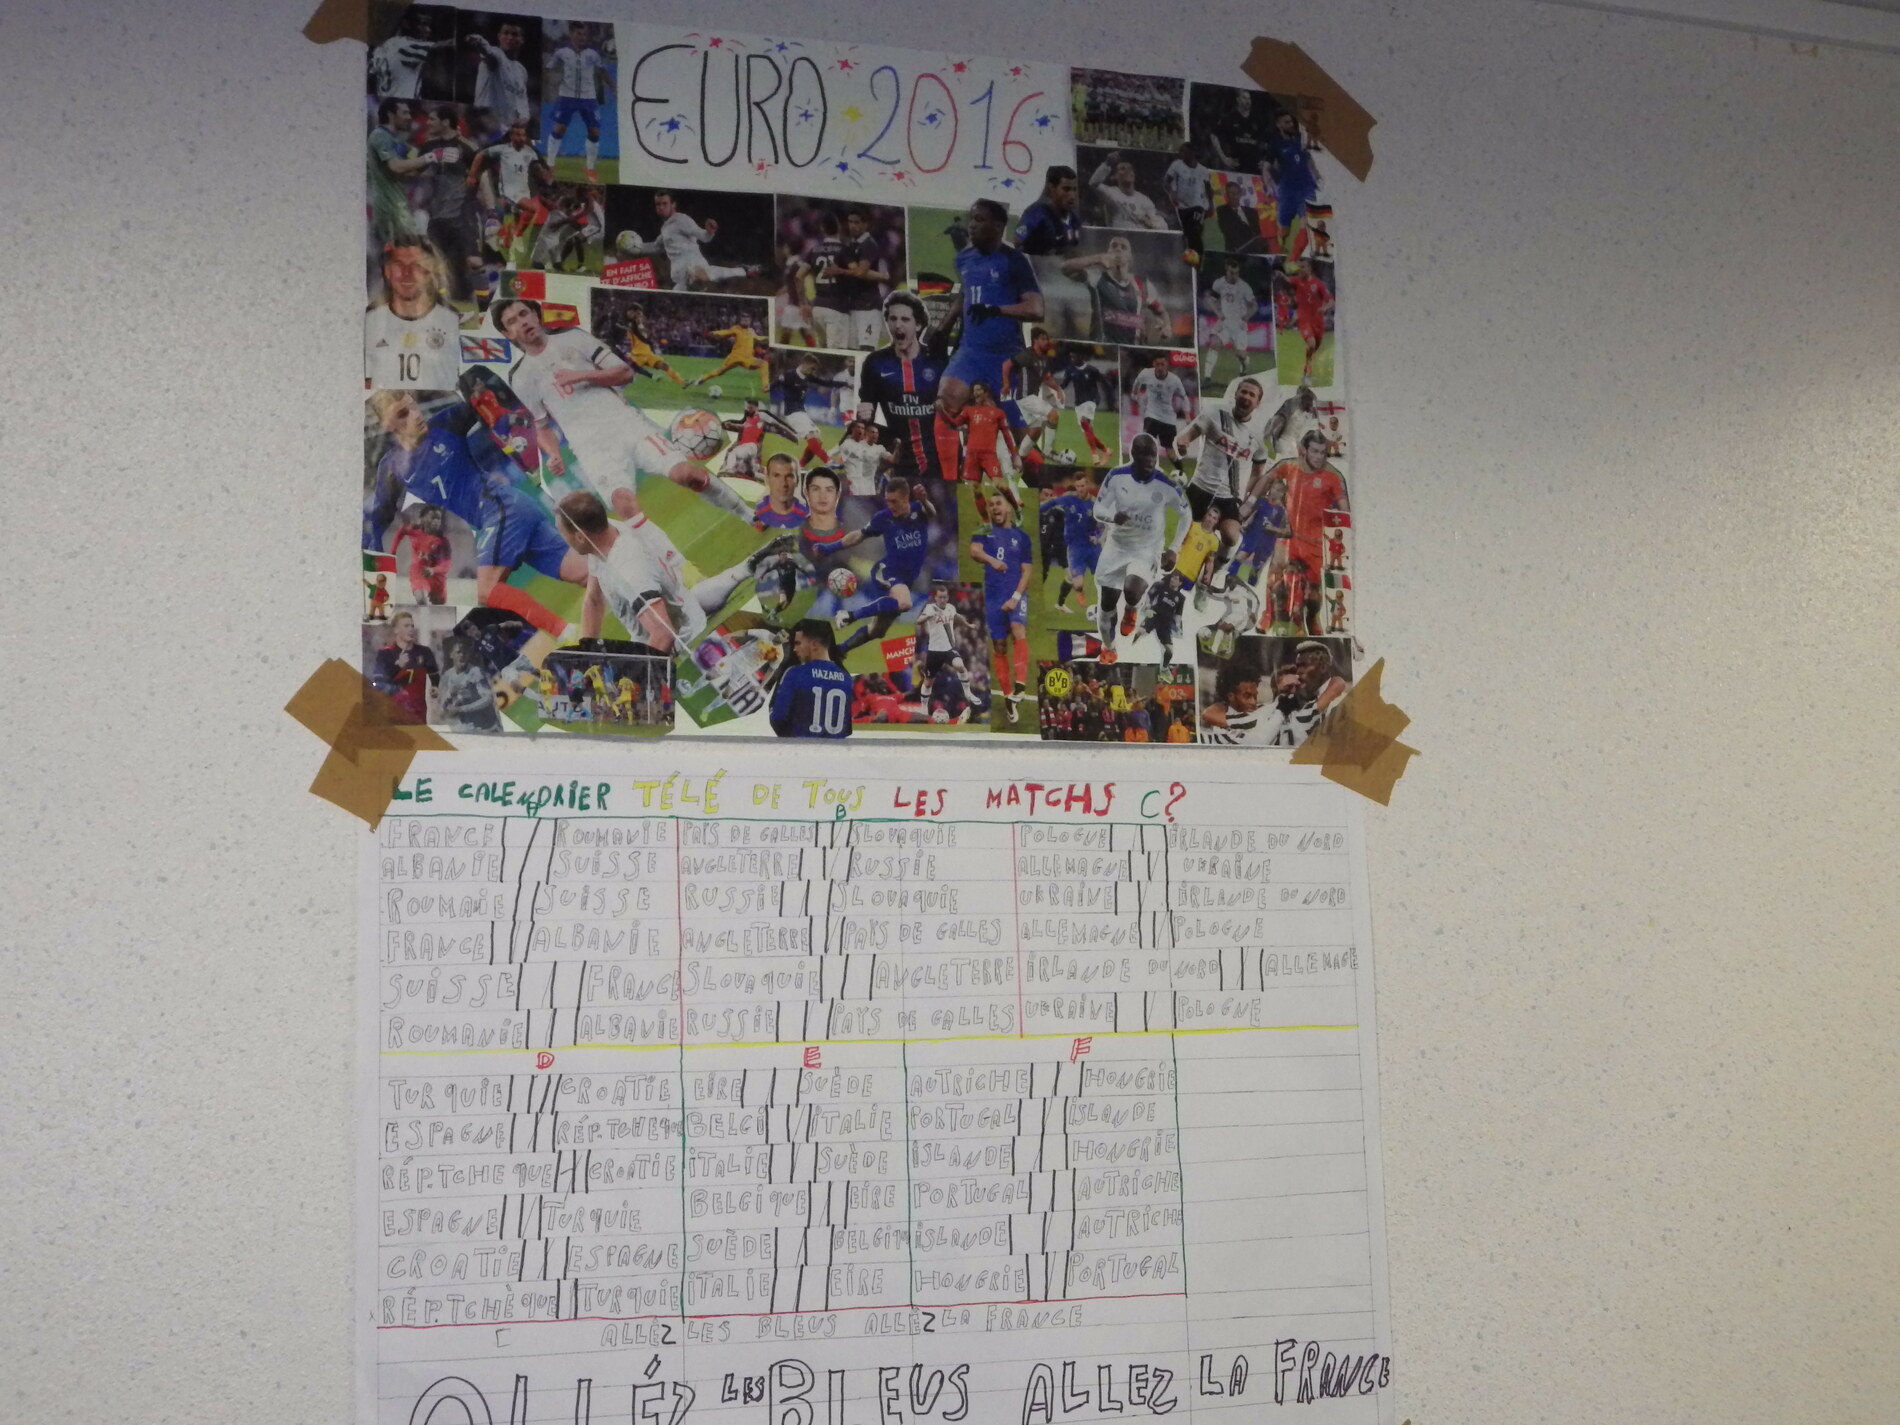 EURO 2016
EN FAIT SA
TE D'AFFICHE
URO !
21
4
11
10
Fly
Emirates
7
KING
POWER
8
AIA
HAZARD
10
BVB
LE CALENDRIER TÉLÉ DE TOUS LES MATCHS ?
A B C
FRANCE / ROUMANIE PAÏS DE GALLES / SLOVAQUIE POLOGNE / IRLANDE DU NORD
ALBANIE / SUISSE ANGLETERRE / RUSSIE ALLEMAGNE / UKRAÏNE
ROUMANIE / SUISSE RUSSIE / SLOVAQUIE UKRAÏNE / IRLANDE DU NORD
FRANCE / ALBANIE ANGLETERRE / PAÏS DE GALLES ALLEMAGNE / POLOGNE
SUISSE / FRANCE SLOVAQUIE / ANGLETERRE IRLANDE DU NORD / ALLEMAGE
ROUMANIE / ALBANIE RUSSIE / PAYS DE GALLES UKRAÏNE / POLOGNE
D E F
TURQUIE / CROATIE EIRE / SUÈDE AUTRICHE / HONGRIE
ESPAGNE / RÉP.TCHEQUE BELGI / ITALIE PORTUGAL / ISLANDE
RÉP.TCHEQUE / CROATIE ITALIE / SUÈDE ISLANDE / HONGRIE
ESPAGNE / TURQUIE BELGIQUE / EIRE PORTUGAL / AUTRICHE
CROATIE / ESPAGNE SUÈDE / BELGIQUE ISLANDE / AUTRICHE
RÉP.TCHÈQUE / TURQUIE ITALIE / EIRE HONGRIE / PORTUGAL
ALLÉZ LES BLEUS ALLÉZ LA FRANCE
ALLÉZ LES BLEUS ALLEZ LA FRANCE